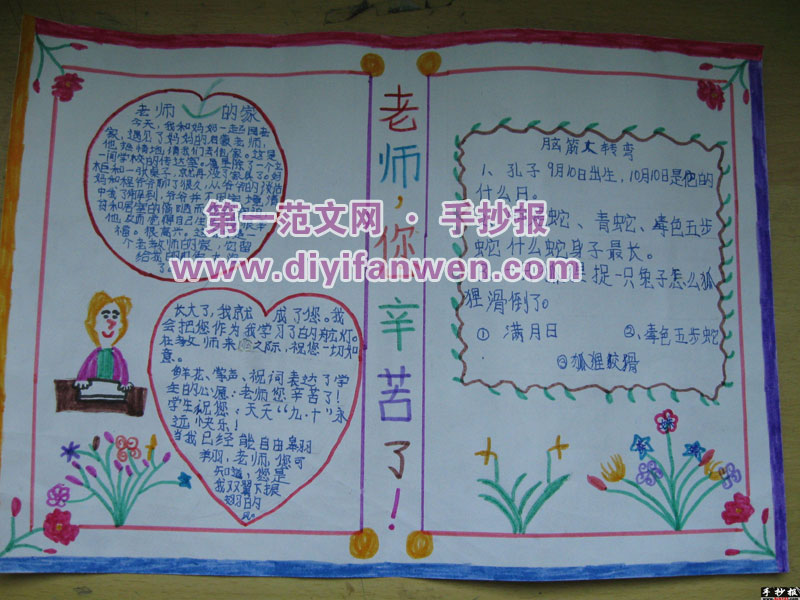 老师 的家
今天，我和妈妈一起回老
家，遇见了妈妈的启蒙老师，
他热情地请我们去他家。这是
一间学校的传达室。
和一张桌子，就再没了家具了。
妈和程爷爷聊了很久，从爷爷的谈话
中我了解到，爷爷并不
他反而觉得自己
福。很高兴。
个老教师的家，它留
给我的
长大了，我就 成了您。我
会把您作为我学习了的航灯。
在教师来 之际，祝您一切如
意。
鲜花、掌声、祝词表达了学
生的心愿：老师您辛苦了！
学生祝您：天天“九·十”永
远快乐！
当我已经能自由翱翔
老师，您可
知道，您是
我双翼下振
翅的
风
老师，您辛苦了！
脑筋大转弯
1、孔子9月10日出生，10月10日是他的
什么日。
蛇、青蛇、毒色五步
蛇什么蛇身子最长。
捉一只兔子怎么狐
狸滑倒了。
① 满月日 ②、毒色五步蛇
③狐狸较滑
第一范文网 · 手抄报
www.diyifanwen.com
手抄报